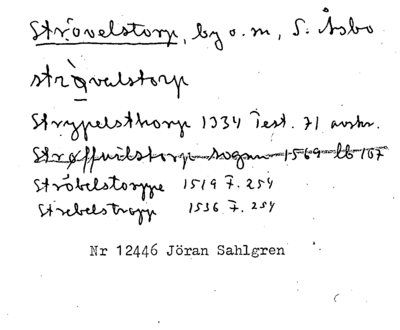 Strövelstorp, by o. sn, S. Åsbo
strò̱valstorp
Strypelsthorp 1334 Test. 71 avskr.
Strøffuilstorp sogn 1569 lb 107
Ströbelstorppe 1519 F. 254
Strebelstropp 1536 F. 254
Nr 12446 Jöran Sahlgren